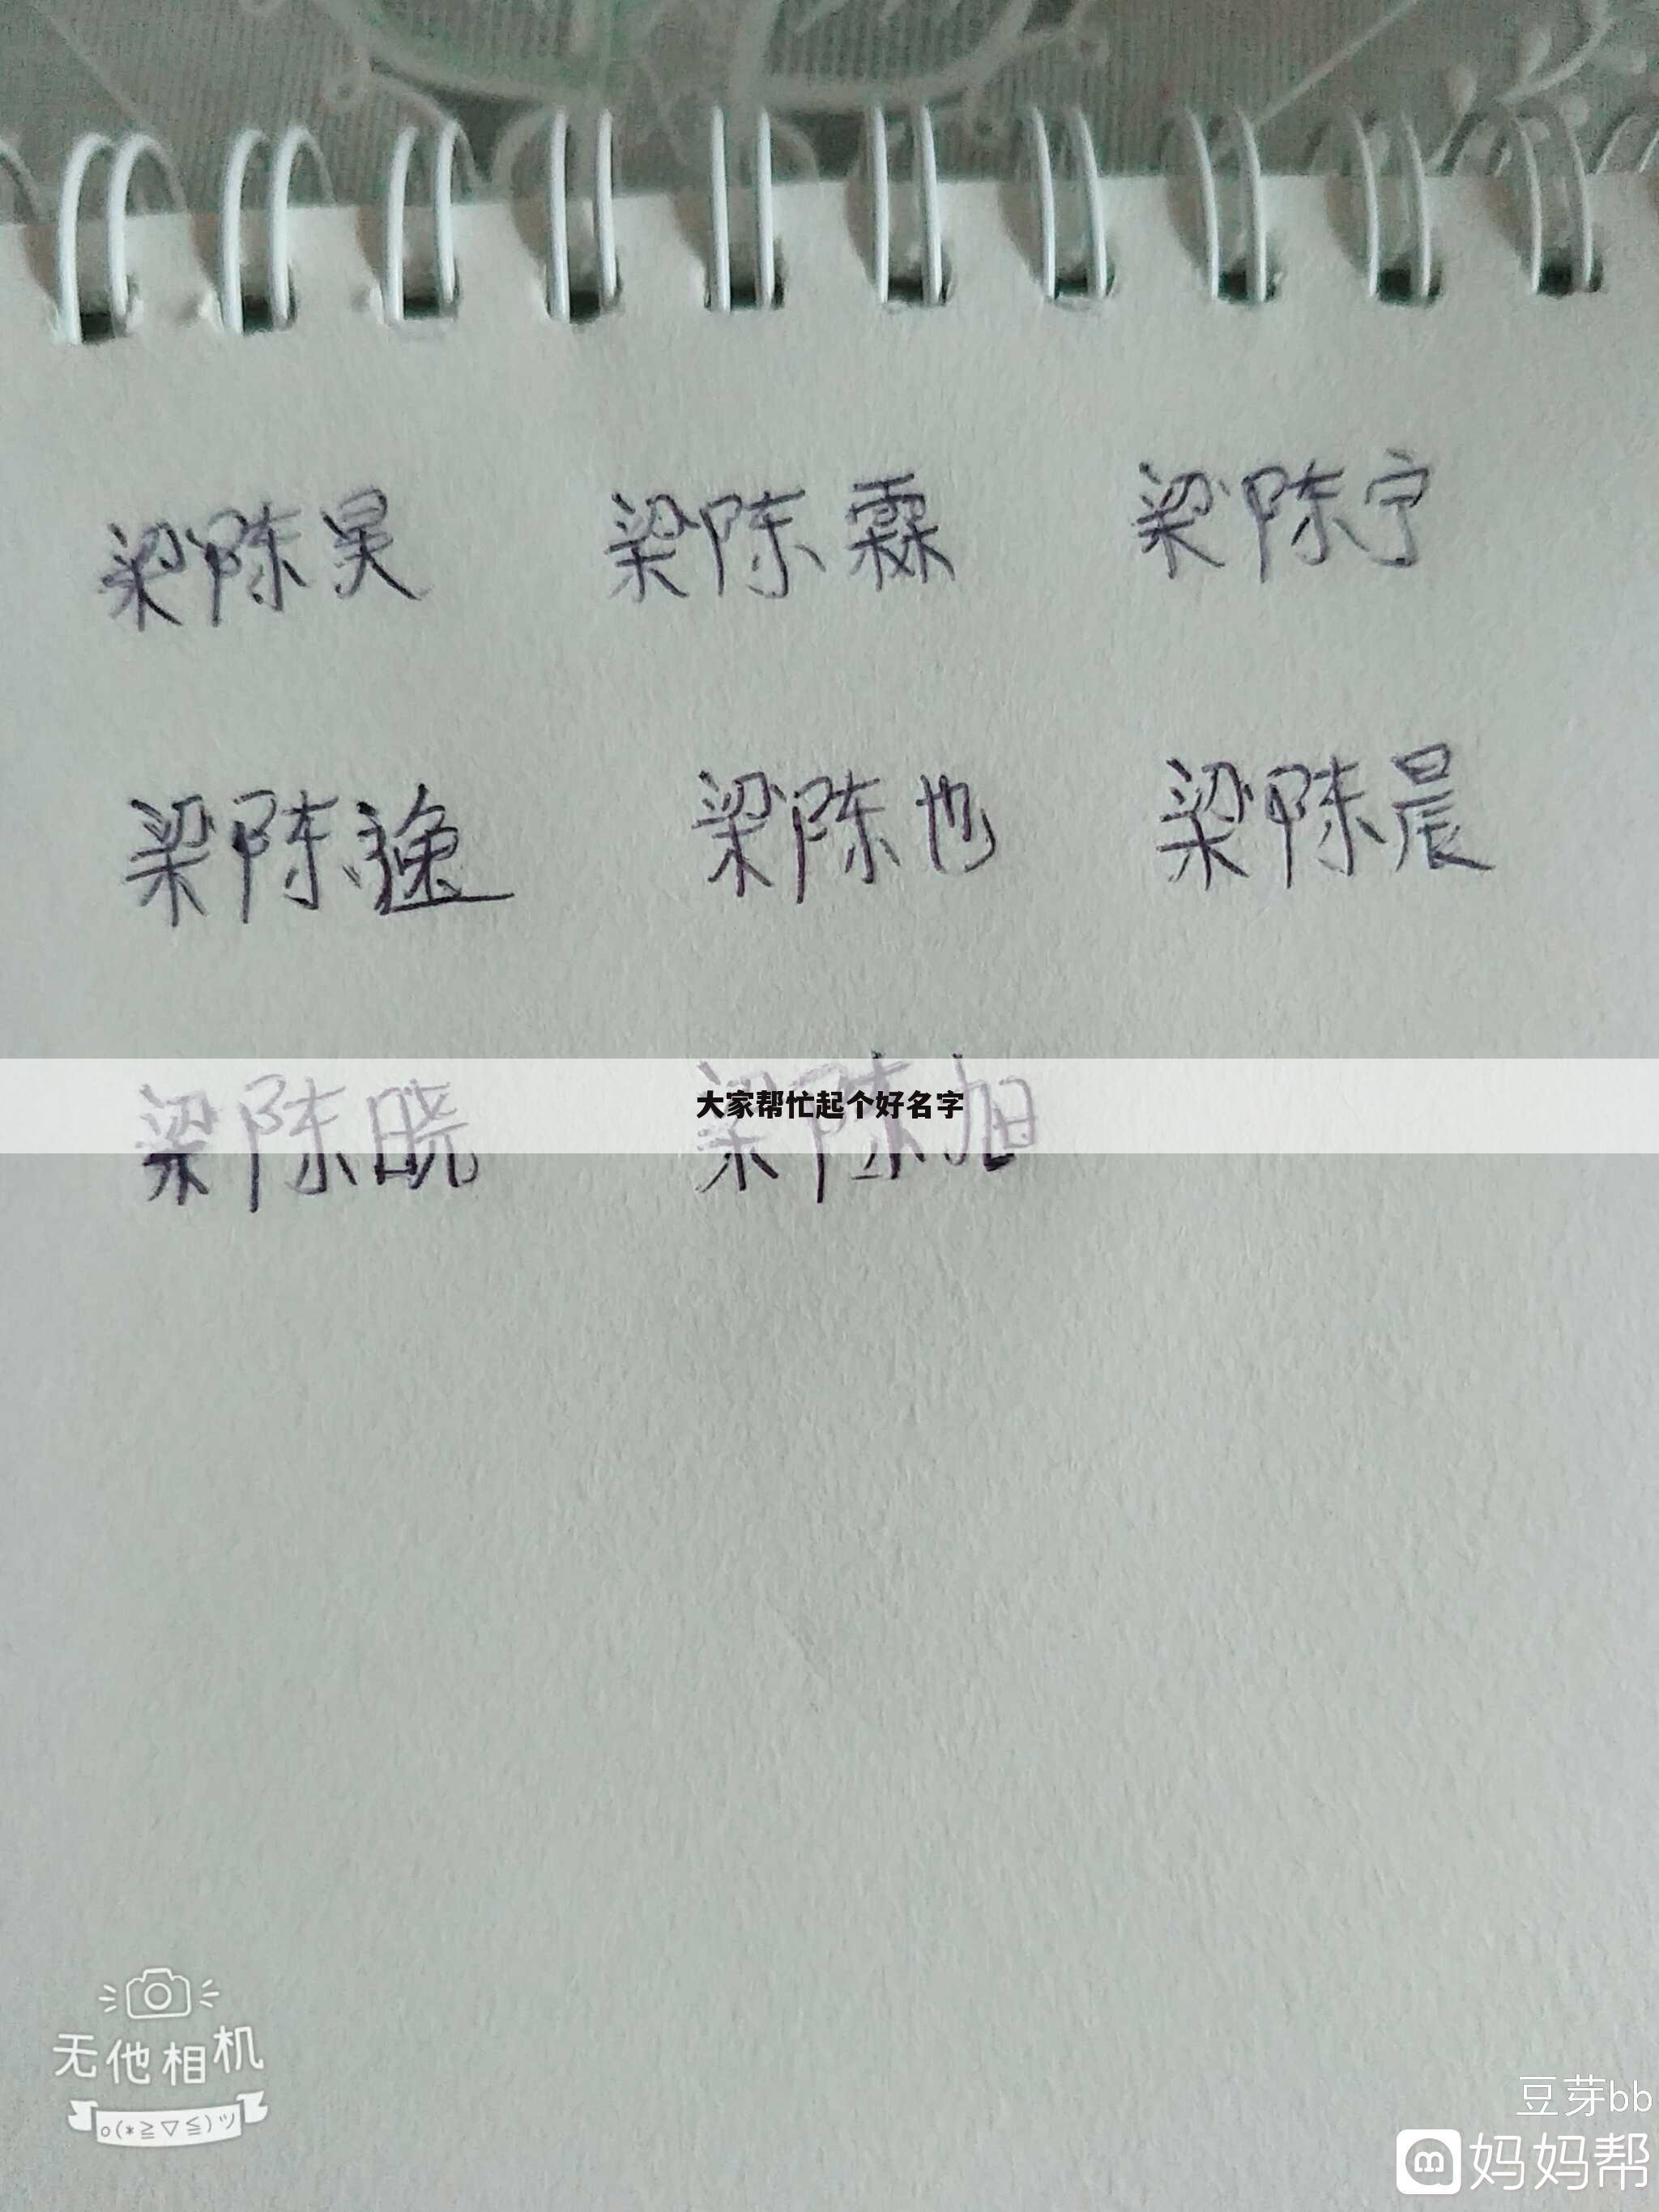 梁陈昊 梁陈霖 梁陈宁
梁陈逸 梁陈也 梁陈晨
梁陈晓 梁陈旭
大家帮忙起个好名字
无他相机
o(*≧▽≦)ツ
豆芽bb
妈妈帮